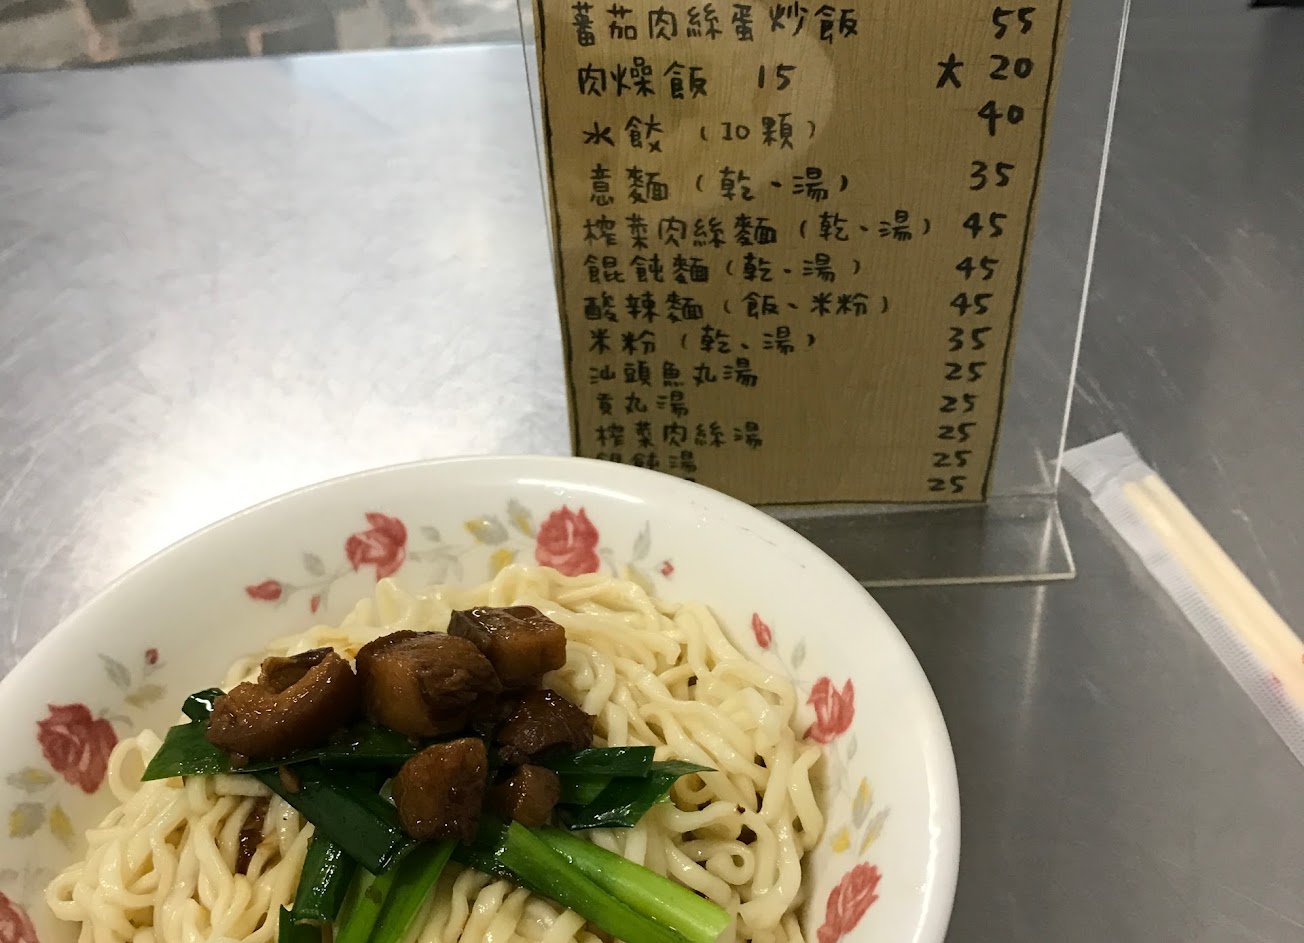 蕃茄肉絲蛋炒飯 55
肉燥飯 15 大 20
水餃（10顆） 40
意麵（乾、湯） 35
榨菜肉絲麵（乾、湯） 45
餛飩麵（乾、湯） 45
酸辣麵（飯、米粉） 45
米粉（乾、湯） 35
汕頭魚丸湯 25
貢丸湯 25
榨菜肉絲湯 25
餛飩湯 25
25